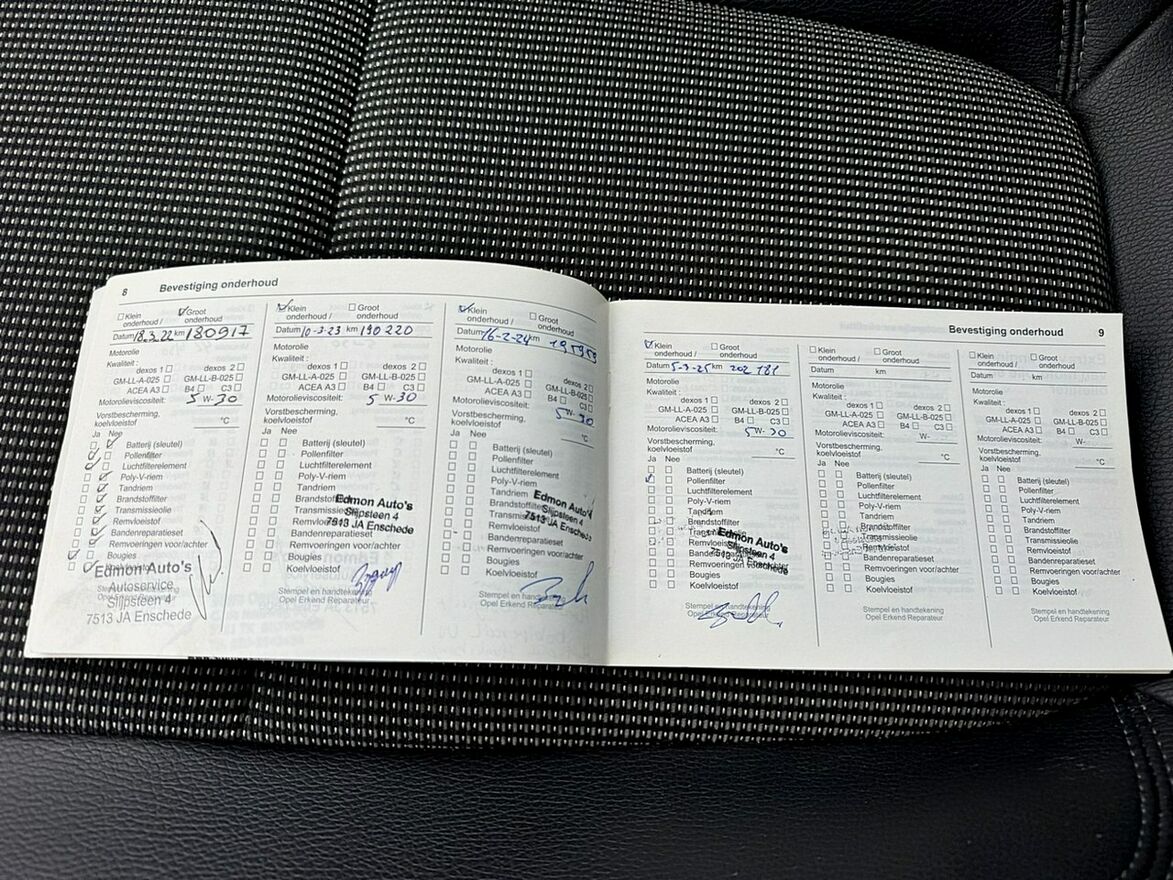 8 Bevestiging onderhoud
Klein onderhoud / Groot onderhoud
Datum 18.3.22 km 180917
Motorolie
Kwaliteit :
dexos 1 dexos 2
GM-LL-A-025 GM-LL-B-025
ACEA A3 B4 C3
Motorolieviscositeit: 5 W-30
Vorstbescherming,
koelvloeistof °C
Ja Nee
Batterij (sleutel)
Pollenfilter
Luchtfilterelement
Poly-V-riem
Tandriem
Brandstoffilter
Transmissieolie
Remvloeistof
Bandenreparatieset
Remvoeringen voor/achter
Bougies
Edmon Auto's
Autoservice
Slijpsteen 4
7513 JA Enschede
Klein onderhoud / Groot onderhoud
Datum 10-3-23 km 190220
Motorolie
Kwaliteit :
dexos 1 dexos 2
GM-LL-A-025 GM-LL-B-025
ACEA A3 B4 C3
Motorolieviscositeit: 5 W-30
Vorstbescherming,
koelvloeistof °C
Ja Nee
Batterij (sleutel)
Pollenfilter
Luchtfilterelement
Poly-V-riem
Tandriem
Brandstoffilter
Transmissieolie
Remvloeistof
Bandenreparatieset
Remvoeringen voor/achter
Bougies
Koelvloeistof
Edmon Auto's
Slijpsteen 4
7513 JA Enschede
Stempel en handtekening
Opel Erkend Reparateur
Klein onderhoud / Groot onderhoud
Datum 16-2-24 km 195959
Motorolie
Kwaliteit :
dexos 1 dexos 2
GM-LL-A-025 GM-LL-B-025
ACEA A3 B4 C3
Motorolieviscositeit: 5 W-30
Vorstbescherming,
koelvloeistof °C
Ja Nee
Batterij (sleutel)
Pollenfilter
Luchtfilterelement
Poly-V-riem
Tandriem
Brandstoffilter
Transmissieolie
Remvloeistof
Bandenreparatieset
Remvoeringen voor/achter
Bougies
Koelvloeistof
Edmon Auto's
Slijpsteen 4
7513 JA Enschede
Stempel en handtekening
Opel Erkend Reparateur
Bevestiging onderhoud 9
Klein onderhoud / Groot onderhoud
Datum 5-3-25 km 202 181
Motorolie
Kwaliteit :
dexos 1 dexos 2
GM-LL-A-025 GM-LL-B-025
ACEA A3 B4 C3
Motorolieviscositeit: 5W-30
Vorstbescherming,
koelvloeistof °C
Ja Nee
Batterij (sleutel)
Pollenfilter
Luchtfilterelement
Poly-V-riem
Tandriem
Brandstoffilter
Transmissieolie
Remvloeistof
Bandenreparatieset
Remvoeringen voor/achter
Bougies
Koelvloeistof
Edmon Auto's
Slijpsteen 4
7513 JA Enschede
Stempel en handtekening
Opel Erkend Reparateur
Klein onderhoud / Groot onderhoud
Datum km
Motorolie
Kwaliteit :
dexos 1 dexos 2
GM-LL-A-025 GM-LL-B-025
ACEA A3 B4 C3
Motorolieviscositeit: W-
Vorstbescherming,
koelvloeistof °C
Ja Nee
Batterij (sleutel)
Pollenfilter
Luchtfilterelement
Poly-V-riem
Tandriem
Brandstoffilter
Transmissieolie
Remvloeistof
Bandenreparatieset
Remvoeringen voor/achter
Bougies
Koelvloeistof
Stempel en handtekening
Opel Erkend Reparateur
Klein onderhoud / Groot onderhoud
Datum km
Motorolie
Kwaliteit :
dexos 1 dexos 2
GM-LL-A-025 GM-LL-B-025
ACEA A3 B4 C3
Motorolieviscositeit: W-
Vorstbescherming,
koelvloeistof °C
Ja Nee
Batterij (sleutel)
Pollenfilter
Luchtfilterelement
Poly-V-riem
Tandriem
Brandstoffilter
Transmissieolie
Remvloeistof
Bandenreparatieset
Remvoeringen voor/achter
Bougies
Koelvloeistof
Stempel en handtekening
Opel Erkend Reparateur